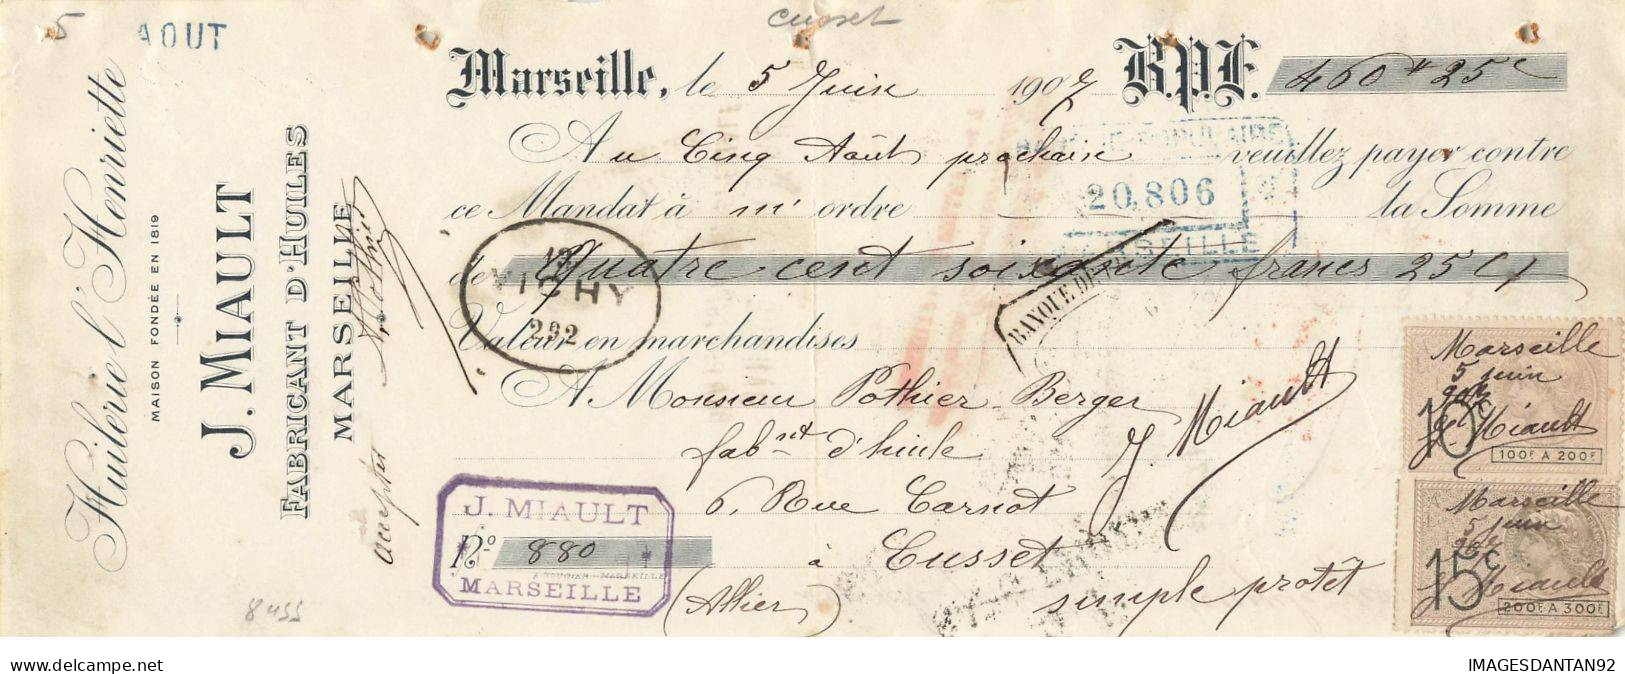 5 AOUT
cusset
Huilerie l'Henriette
MAISON FONDÉE EN 1819
J. MIAULT
FABRICANT D'HUILES
MARSEILLE
accepter
Marseille, le 5 Juin 1907 B.P.F. 460 f 25 c
Au Cinq Août prochain veuillez payer contre
ce Mandat à m/ ordre la Somme
de Quatre cent soixante francs 25 c/
Valeur en marchandises
A Monsieur Pothier-Berger
fabnt d'huile
6, Rue Carnot
à Cusset
(Allier)
J Miault
simple protêt
20,806
MARSEILLE
VICHY
292
BANQUE DE
J. MIAULT
No 880
MARSEILLE
8455
Marseille
5 juin
907
J Miault
10
100F A 200F
Marseille
5 juin
907
J Miault
15c
200F A 300F
IMAGESDANTAN92